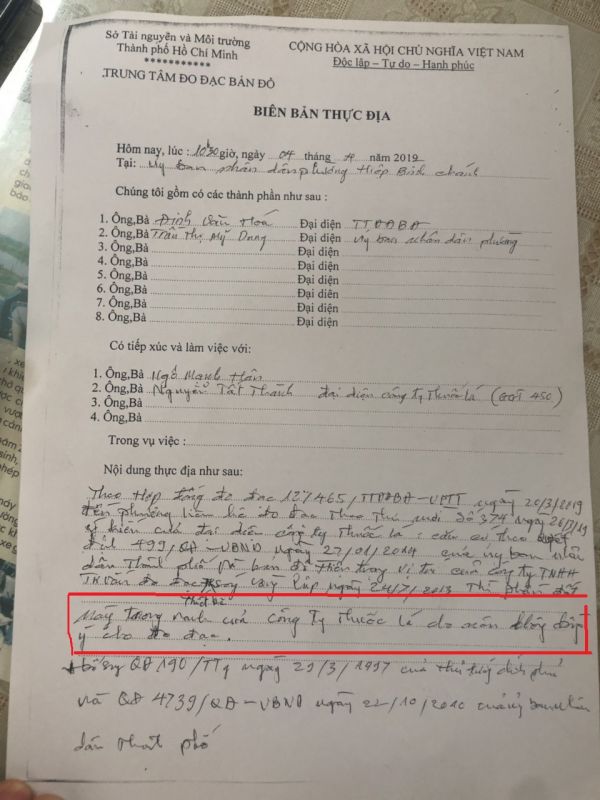 Sở Tài nguyên và Môi trường
Thành phố Hồ Chí Minh
***********
TRUNG TÂM ĐO ĐẠC BẢN ĐỒ
CỘNG HÒA XÃ HỘI CHỦ NGHĨA VIỆT NAM
Độc lập – Tự do – Hạnh phúc
BIÊN BẢN THỰC ĐỊA
Hôm nay, lúc : 10h30 giờ, ngày 04 tháng 4 năm 2019
Tại: Uỷ ban nhân dân phường Hiệp Bình Chánh
Chúng tôi gồm có các thành phần như sau :
1. Ông,Bà Đinh Văn Hoá Đại diện TTĐĐBĐ
2. Ông,Bà Trần Thị Mỹ Dung Đại diện Uỷ ban nhân dân phường
3. Ông,Bà Đại diện
4. Ông,Bà Đại diện
5. Ông,Bà Đại diện
6. Ông,Bà Đại diện
7. Ông,Bà Đại diện
8. Ông,Bà Đại diện
Có tiếp xúc và làm việc với:
1. Ông,Bà Ngô Mạnh Hân
2. Ông,Bà Nguyễn Tất Thành đại diện công ty thuốc lá
3. Ông,Bà
4. Ông,Bà
Trong vụ việc :
Nội dung thực địa như sau:
Theo Hợp đồng đo đạc 127465/TTĐĐBĐ-VPTT ngày 20/3/2019
đến phường liên hệ đo đạc theo thư mời Số 374 ngày 26/3/19
ý kiến của đại diện công ty thuốc lá : căn cứ theo quyết
định 499/QĐ-UBND ngày 27/01/2014 của uỷ ban nhân
dân thành phố và bản đồ hiện trạng vị trí của công ty TNHH
đo đạc lập ngày 24/7/2013 Thì phần đất
này trong ranh của công ty thuốc lá do nên không đồng
ý cho đo đạc.
QĐ 190/TTg ngày 29/3/1997 của thủ tướng chính phủ
và QĐ 4739/QĐ-UBND ngày 22/10/2010 của uỷ ban nhân
dân thành phố